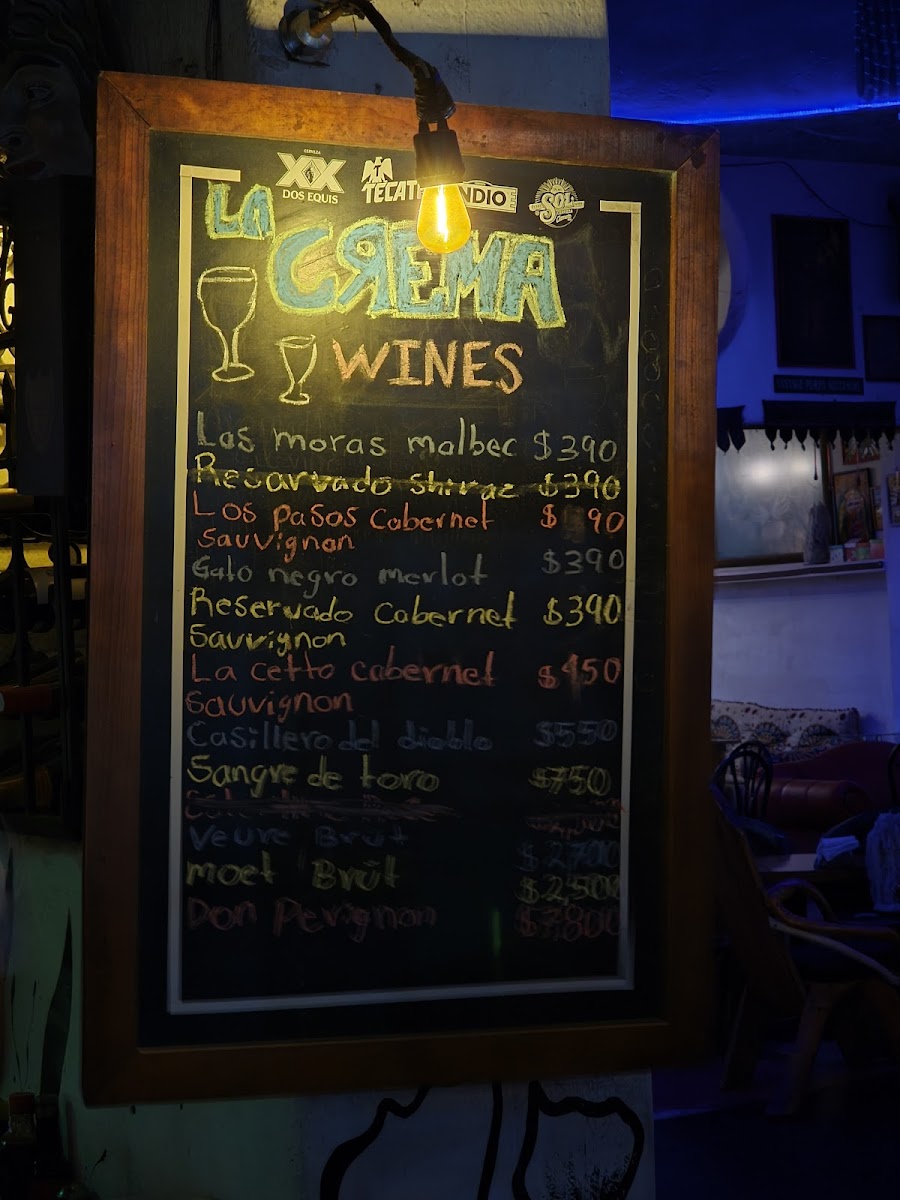 CERVEZA
XX
DOS EQUIS
TECAT
NDIO
SOL
LA
CREMA
WINES
Las moras malbec $390
Resarvado Shiraz $390
Los pasos Cabernet $ 90
Sauvignon
Gato negro merlot $390
Reservado Cabernet $390
Sauvignon
La cetto cabernet $450
Sauvignon
Casillero del diablo $550
Sangre de toro $750
Veuve Brut $2,700
moet Brut $2,500
Don Perignon $7,800